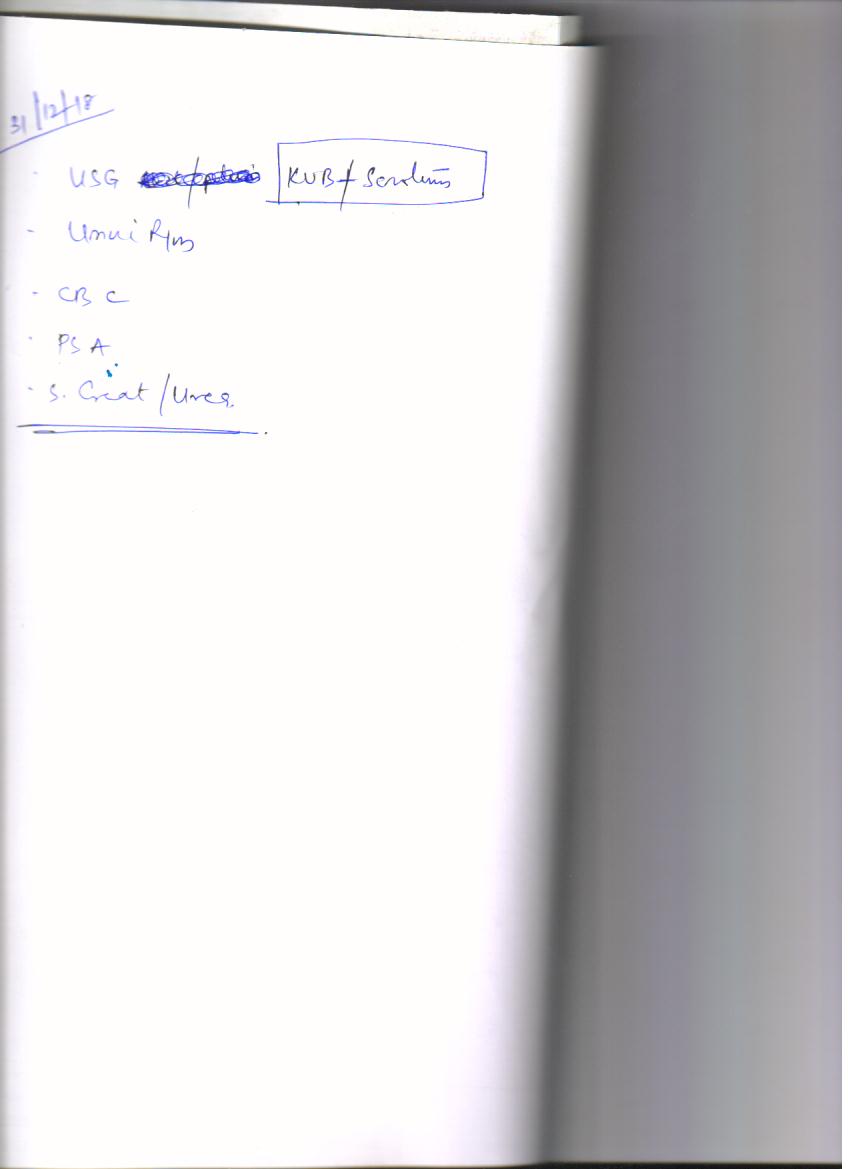 31/12/18
- USG KUB + Scrotum
- Urine R/m
- CBC
- PSA
- S. Creat / Urea